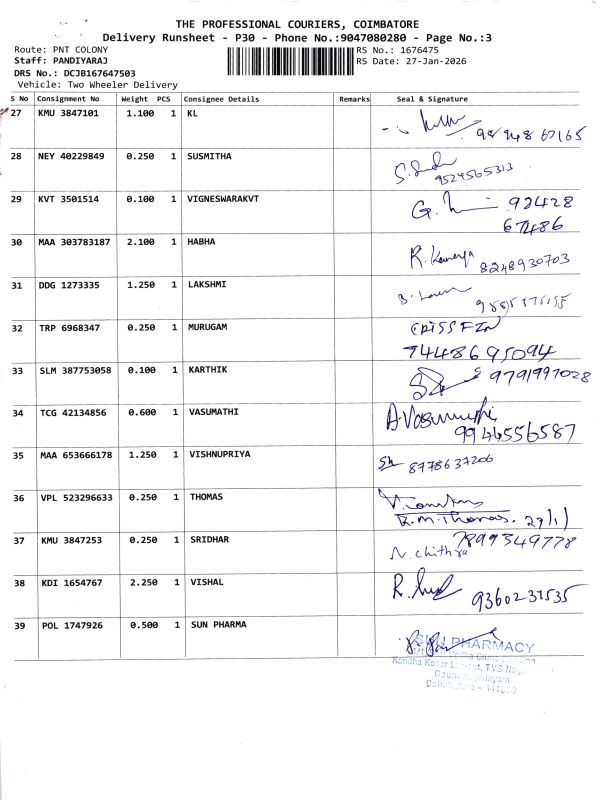 THE PROFESSIONAL COURIERS, COIMBATORE
Delivery Runsheet - P30 - Phone No.:9047080280 - Page No.:3
Route: PNT COLONY
RS No.: 1676475
Staff: PANDIYARAJ
RS Date: 27-Jan-2026
DRS No.: DCJB167647503
Vehicle: Two Wheeler Delivery
S No Consignment No Weight PCS Consignee Details Remarks Seal & Signature
27 KMU 3847101 1.100 1 KL
28 NEY 40229849 0.250 1 SUSMITHA
9524565313
29 KVT 3501514 0.100 1 VIGNESWARAKVT
92428
67486
30 MAA 303783187 2.100 1 HABHA
8248930703
31 DDG 1273335 1.250 1 LAKSHMI
32 TRP 6968347 0.250 1 MURUGAM
CRISSFIN
74448695094
33 SLM 387753058 0.100 1 KARTHIK
9791997028
34 TCG 42134856 0.600 1 VASUMATHI
A.Vasumathi
9944556587
35 MAA 653666178 1.250 1 VISHNUPRIYA
8778637206
36 VPL 523296633 0.250 1 THOMAS
K.M.Thomas. 27/1/
37 KMU 3847253 0.250 1 SRIDHAR
7899349778
N.chithra
38 KDI 1654767 2.250 1 VISHAL
9360237535
39 POL 1747926 0.500 1 SUN PHARMA
SUN PHARMACY
TVS Nagar
Goundampalayam
Coimbatore